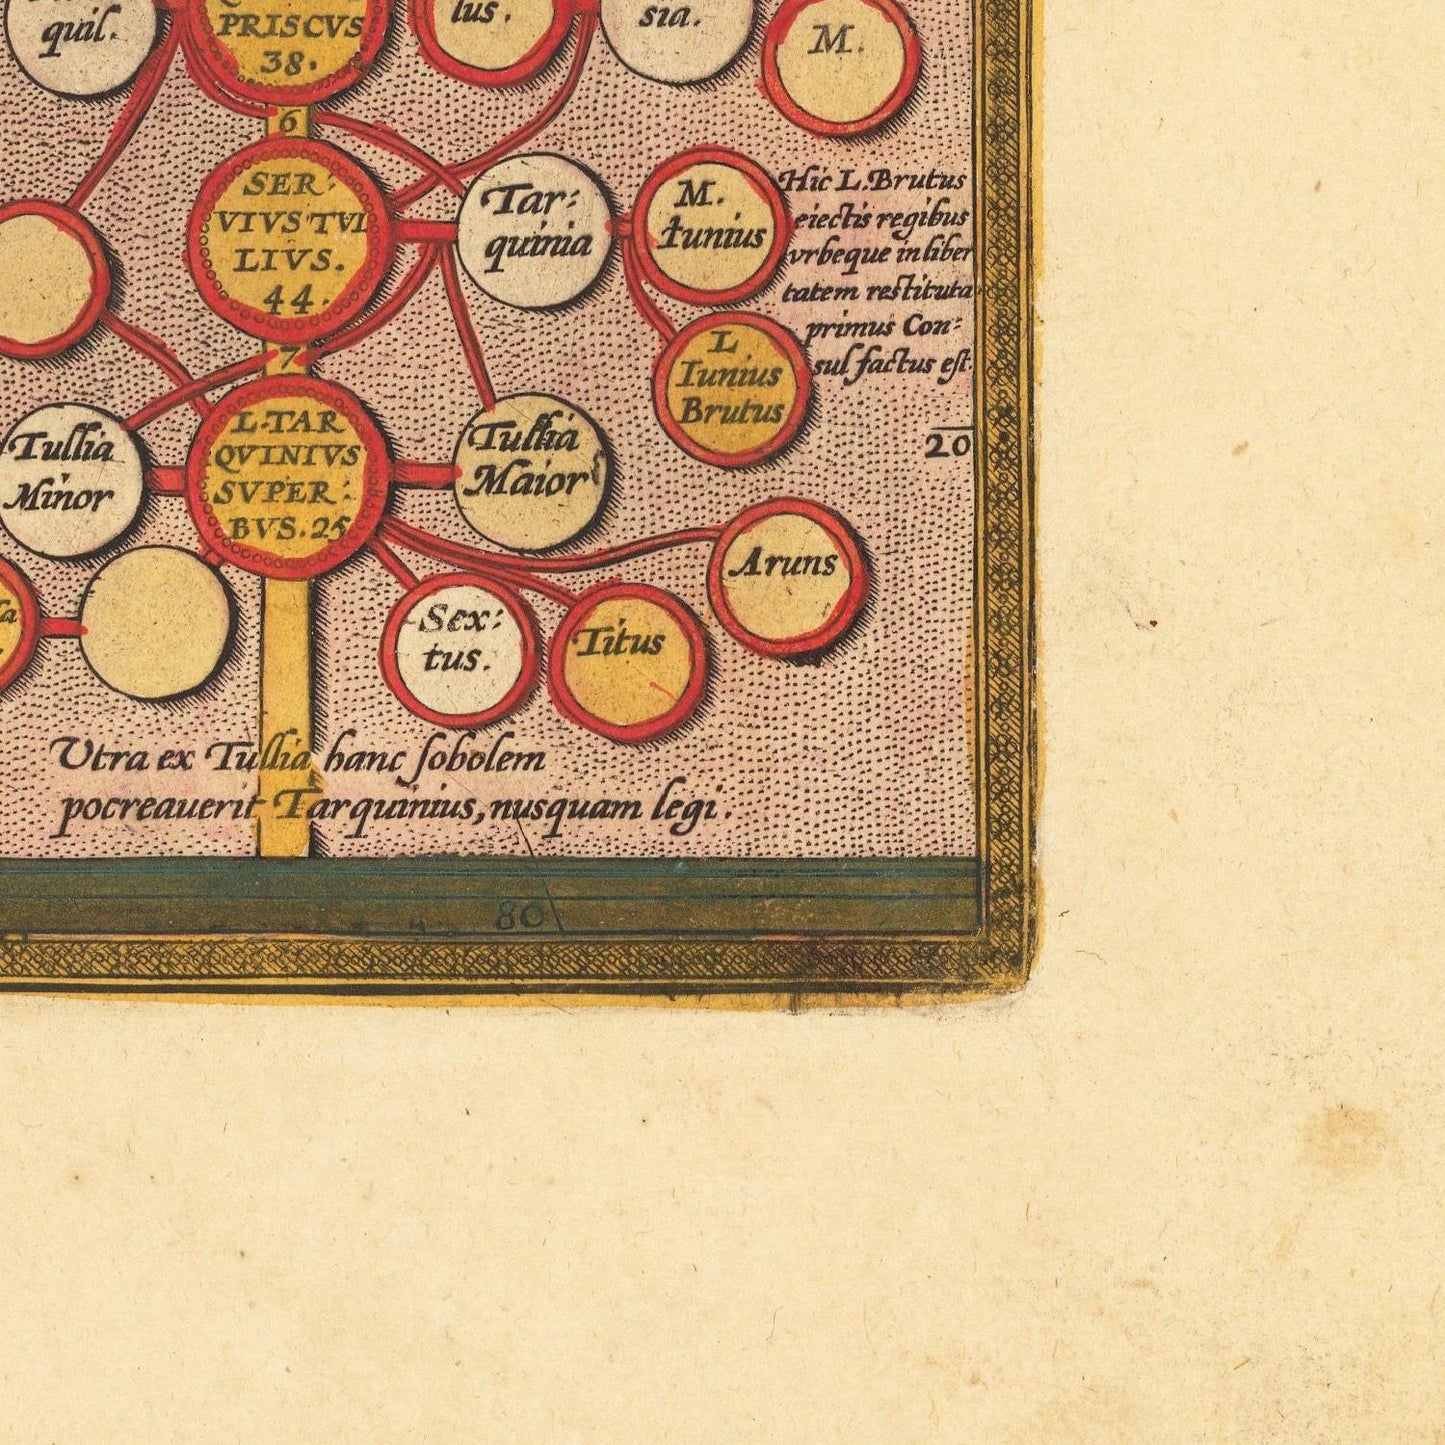 quil.
PRISCVS
38.
lus.
sia.
M.
6
SER:
VIVS TVL
LIVS.
44.
Tar:
quinia
M.
Iunius
Hic L. Brutus
eiectis regibus
vrbeque in liber
tatem restituta
primus Con:
sul factus est.
L
Iunius
Brutus
7
20
Tullia
Minor
L.TAR
QVINIVS
SVPER:
BVS.25
Tullia
Maior
Aruns
Sex:
tus.
Titus
Utra ex Tullia hanc sobolem
pocreauerit Tarquinius, nusquam legi.
80